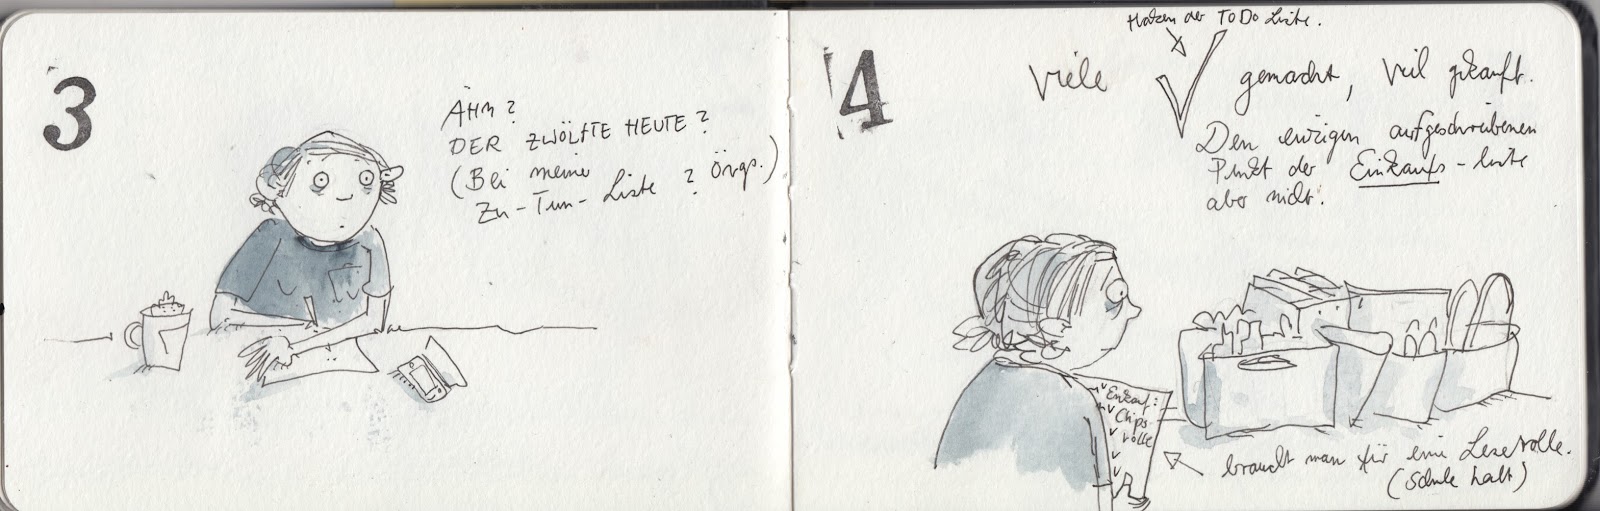 3
ÄHM?
DER ZWÖLFTE HEUTE?
(Bei meiner
Zu-Tun-Liste? Örgs.)
4
Haken der ToDo Liste.
Viele ✓ gemacht, viel gekauft.
Den einzigen aufgeschriebenen
Punkt der Einkaufs-liste
aber nicht.
Einkauf:
Chips
rolle
braucht man für eine Leserolle.
(Schule halt)